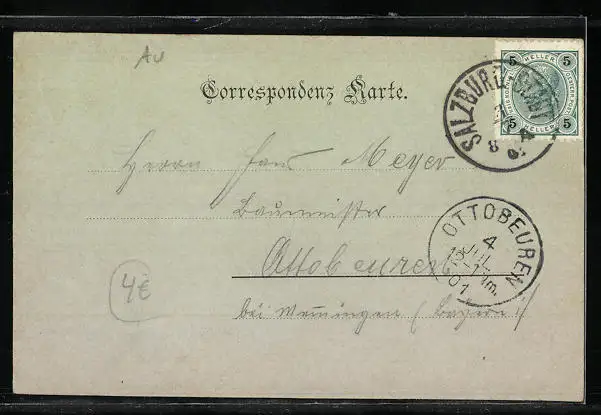 Au
Correspondenz Karte.
5 HELLER 5
5 HELLER 5
SALZBURG
8
Herrn Hans Meyer
Baumeister
Ottobeuren
OTTOBEUREN
4
JUL
01
4€
bei Memmingen (Bayern)